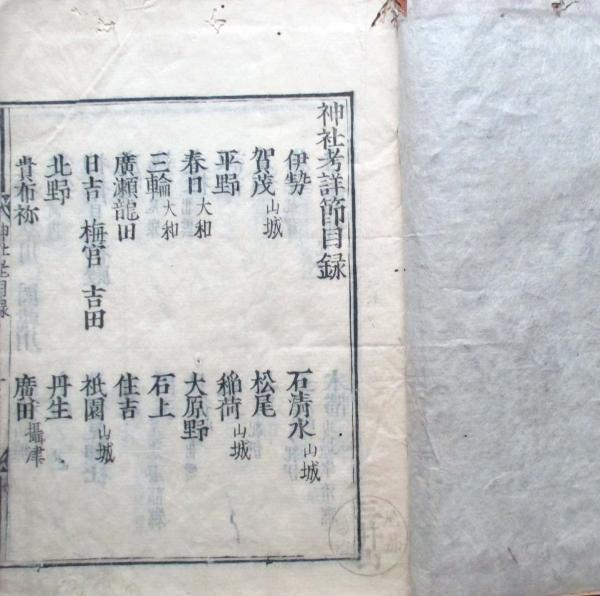 神社考詳節目録
伊勢 石清水山城
賀茂山城 松尾
平野 稲荷山城
春日大和 大原野
三輪大和 石上
廣瀬龍田 住吉
日吉 梅宮 吉田 祇園山城
北野 丹生
貴布祢 廣田攝津
神社考目録